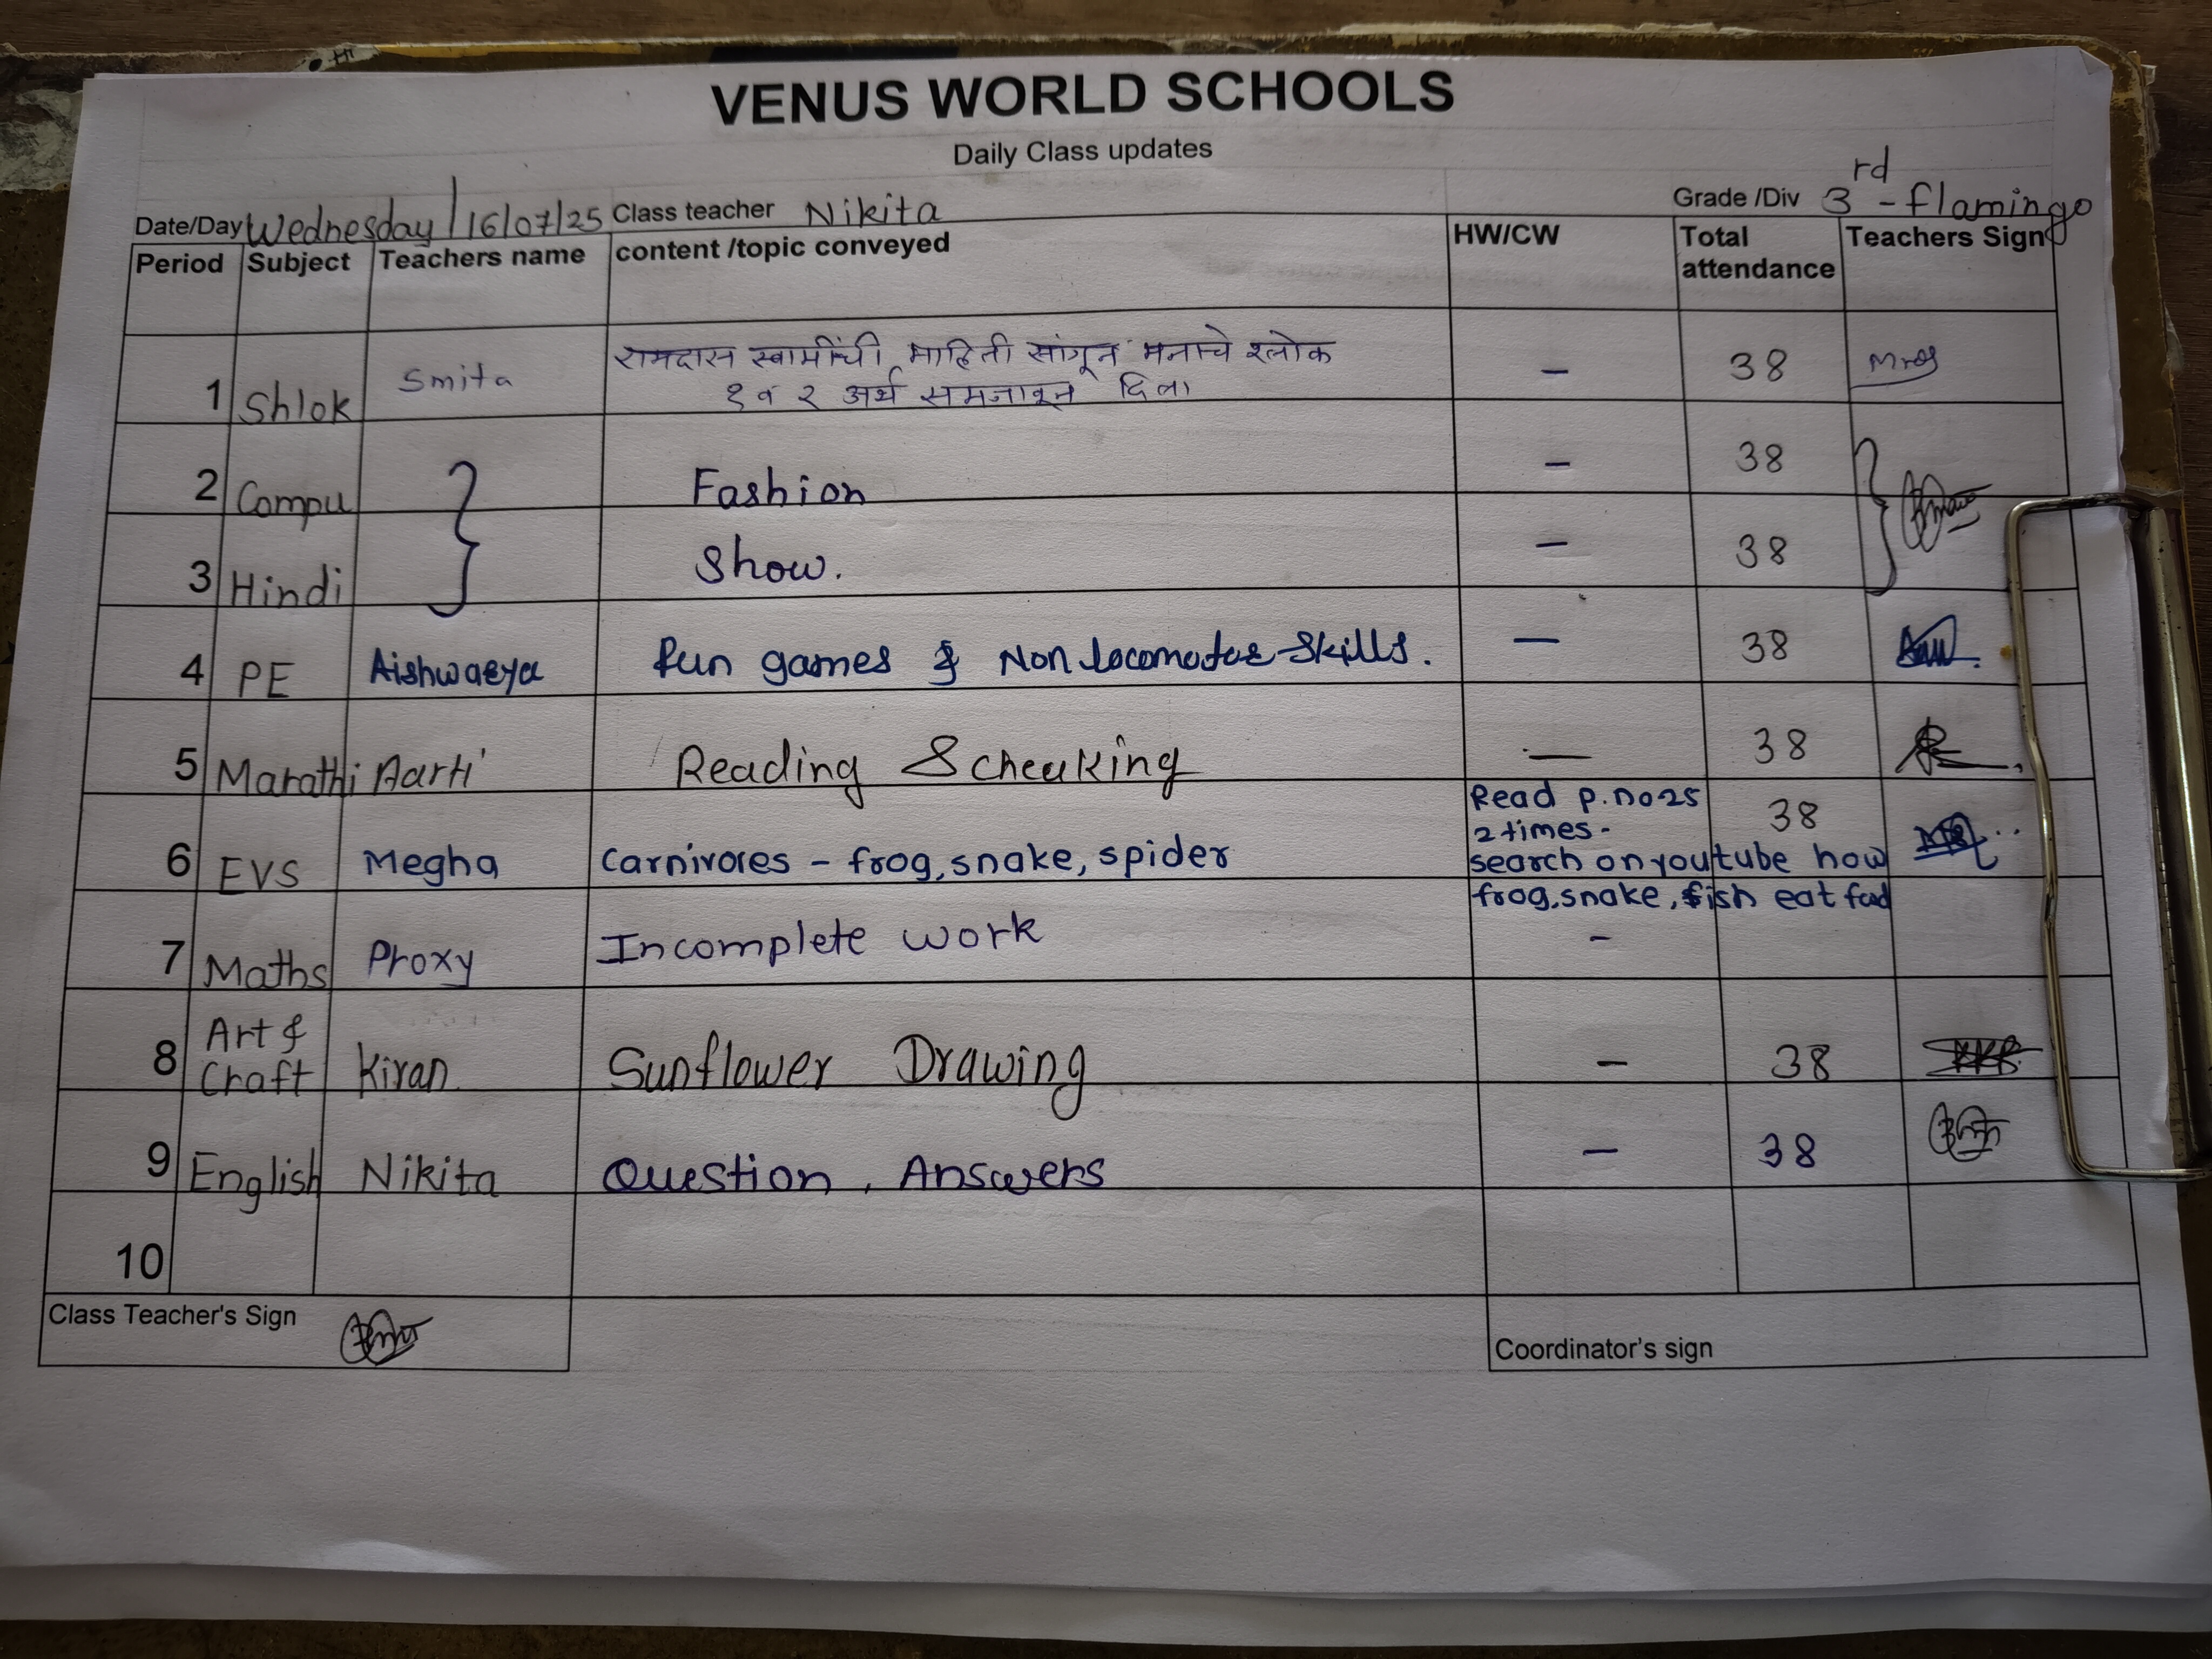 VENUS WORLD SCHOOLS
Daily Class updates
Date/Day Wednesday / 16/07/25 Class teacher Nikita Grade /Div 3rd - flamingo
Period Subject Teachers name content /topic conveyed HW/CW Total attendance Teachers Sign
रामदास स्वामींची माहिती सांगून मनाचे श्लोक
1 Shlok Smita १ व २ अर्थ समजावून दिला - 38
2 Compu Fashion - 38
3 Hindi Show. - 38
4 PE Aishwarya Fun games & Non locomotor Skills. - 38
5 Marathi Aarti Reading & Cheaking - 38
Read p.no 25
2 times -
6 EVS Megha Carnivores - frog, snake, spider search on youtube how 38
frog, snake, fish eat food
7 Maths Proxy Incomplete work -
8 Art & Craft Kiran Sunflower Drawing - 38
9 English Nikita Question , Answers - 38
10
Class Teacher's Sign
Coordinator's sign